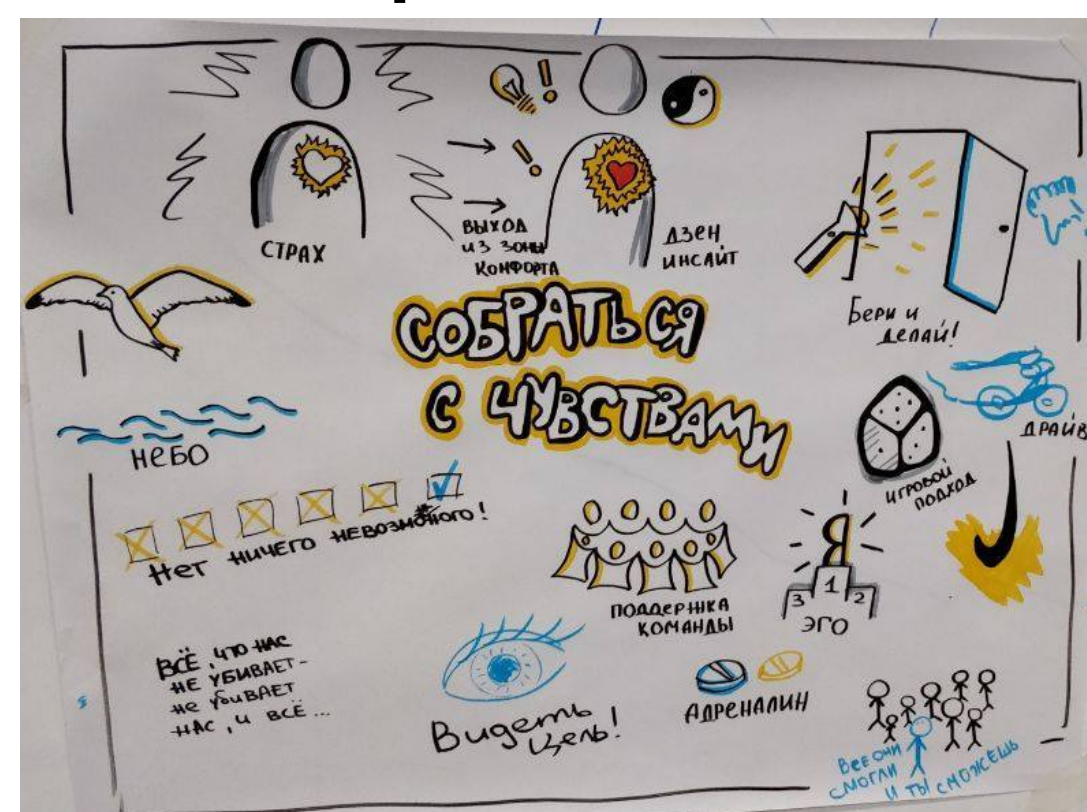 СТРАХ
ВЫХОД
ИЗ ЗОНЫ
КОМФОРТА
ДЗЕН
ИНСАЙТ
Бери и
делай!
СОБРАТЬСЯ
С ЧУВСТВАМИ
НЕБО
ДРАЙВ
ИГРОВОЙ
ПОДХОД
Нет ничего невозможного!
Я
3 1 2
ЭГО
ПОДДЕРЖКА
КОМАНДЫ
ВСЁ, ЧТО НАС
НЕ УБИВАЕТ-
не убивает
НАС, И ВСЁ...
Видеть
цель!
АДРЕНАЛИН
ВСЕ ОНИ
СМОГЛИ
И ТЫ СМОЖЕШЬ